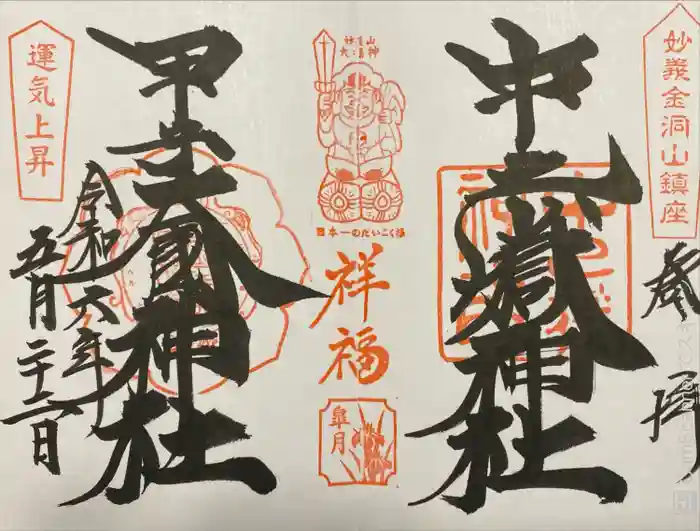 妙義金洞山鎮座
奉拝
中之嶽神社
日本一のだいこく様
祥福
皐月
甲子大國神社
令和六年
五月二十六日
運気上昇